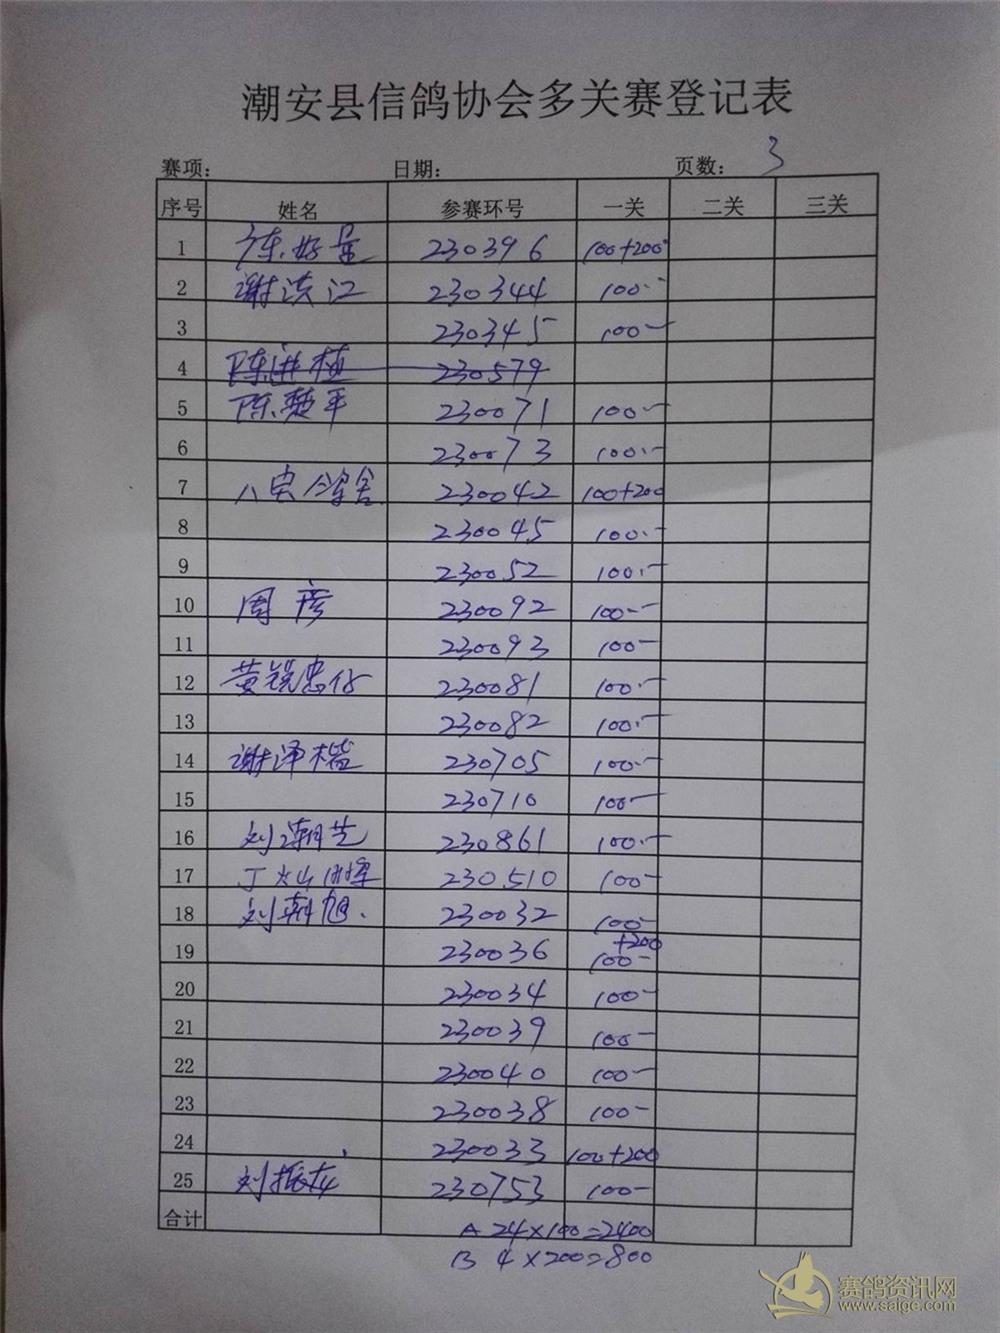 潮安县信鸽协会多关赛登记表
赛项: 日期: 页数: 3
序号 姓名 参赛环号 一关 二关 三关
1 陈好量 230396 100+200
2 谢洪江 230344 100.-
3 230345 100-
4 陈进植 230579
5 陈楚平 230071 100.-
6 230073 100.-
7 八史鸽舍 230042 100+200
8 230045 100.-
9 230052 100.-
10 周彦 230092 100.-
11 230093 100-
12 黄锐忠仔 230081 100.-
13 230082 100.-
14 谢泽楷 230705 100.-
15 230710 100-
16 刘潮艺 230861 100.-
17 丁火山 230510 100-
18 刘朝旭. 230032 100-
19 230036 +200 100-
20 230034 100-
21 230039 100-
22 230040 100-
23 230038 100-
24 230033 100+200
25 刘振龙 230753 100-
合计 A 24×100=2400
B 4×200=800
赛鸽资讯网
www.saige.com